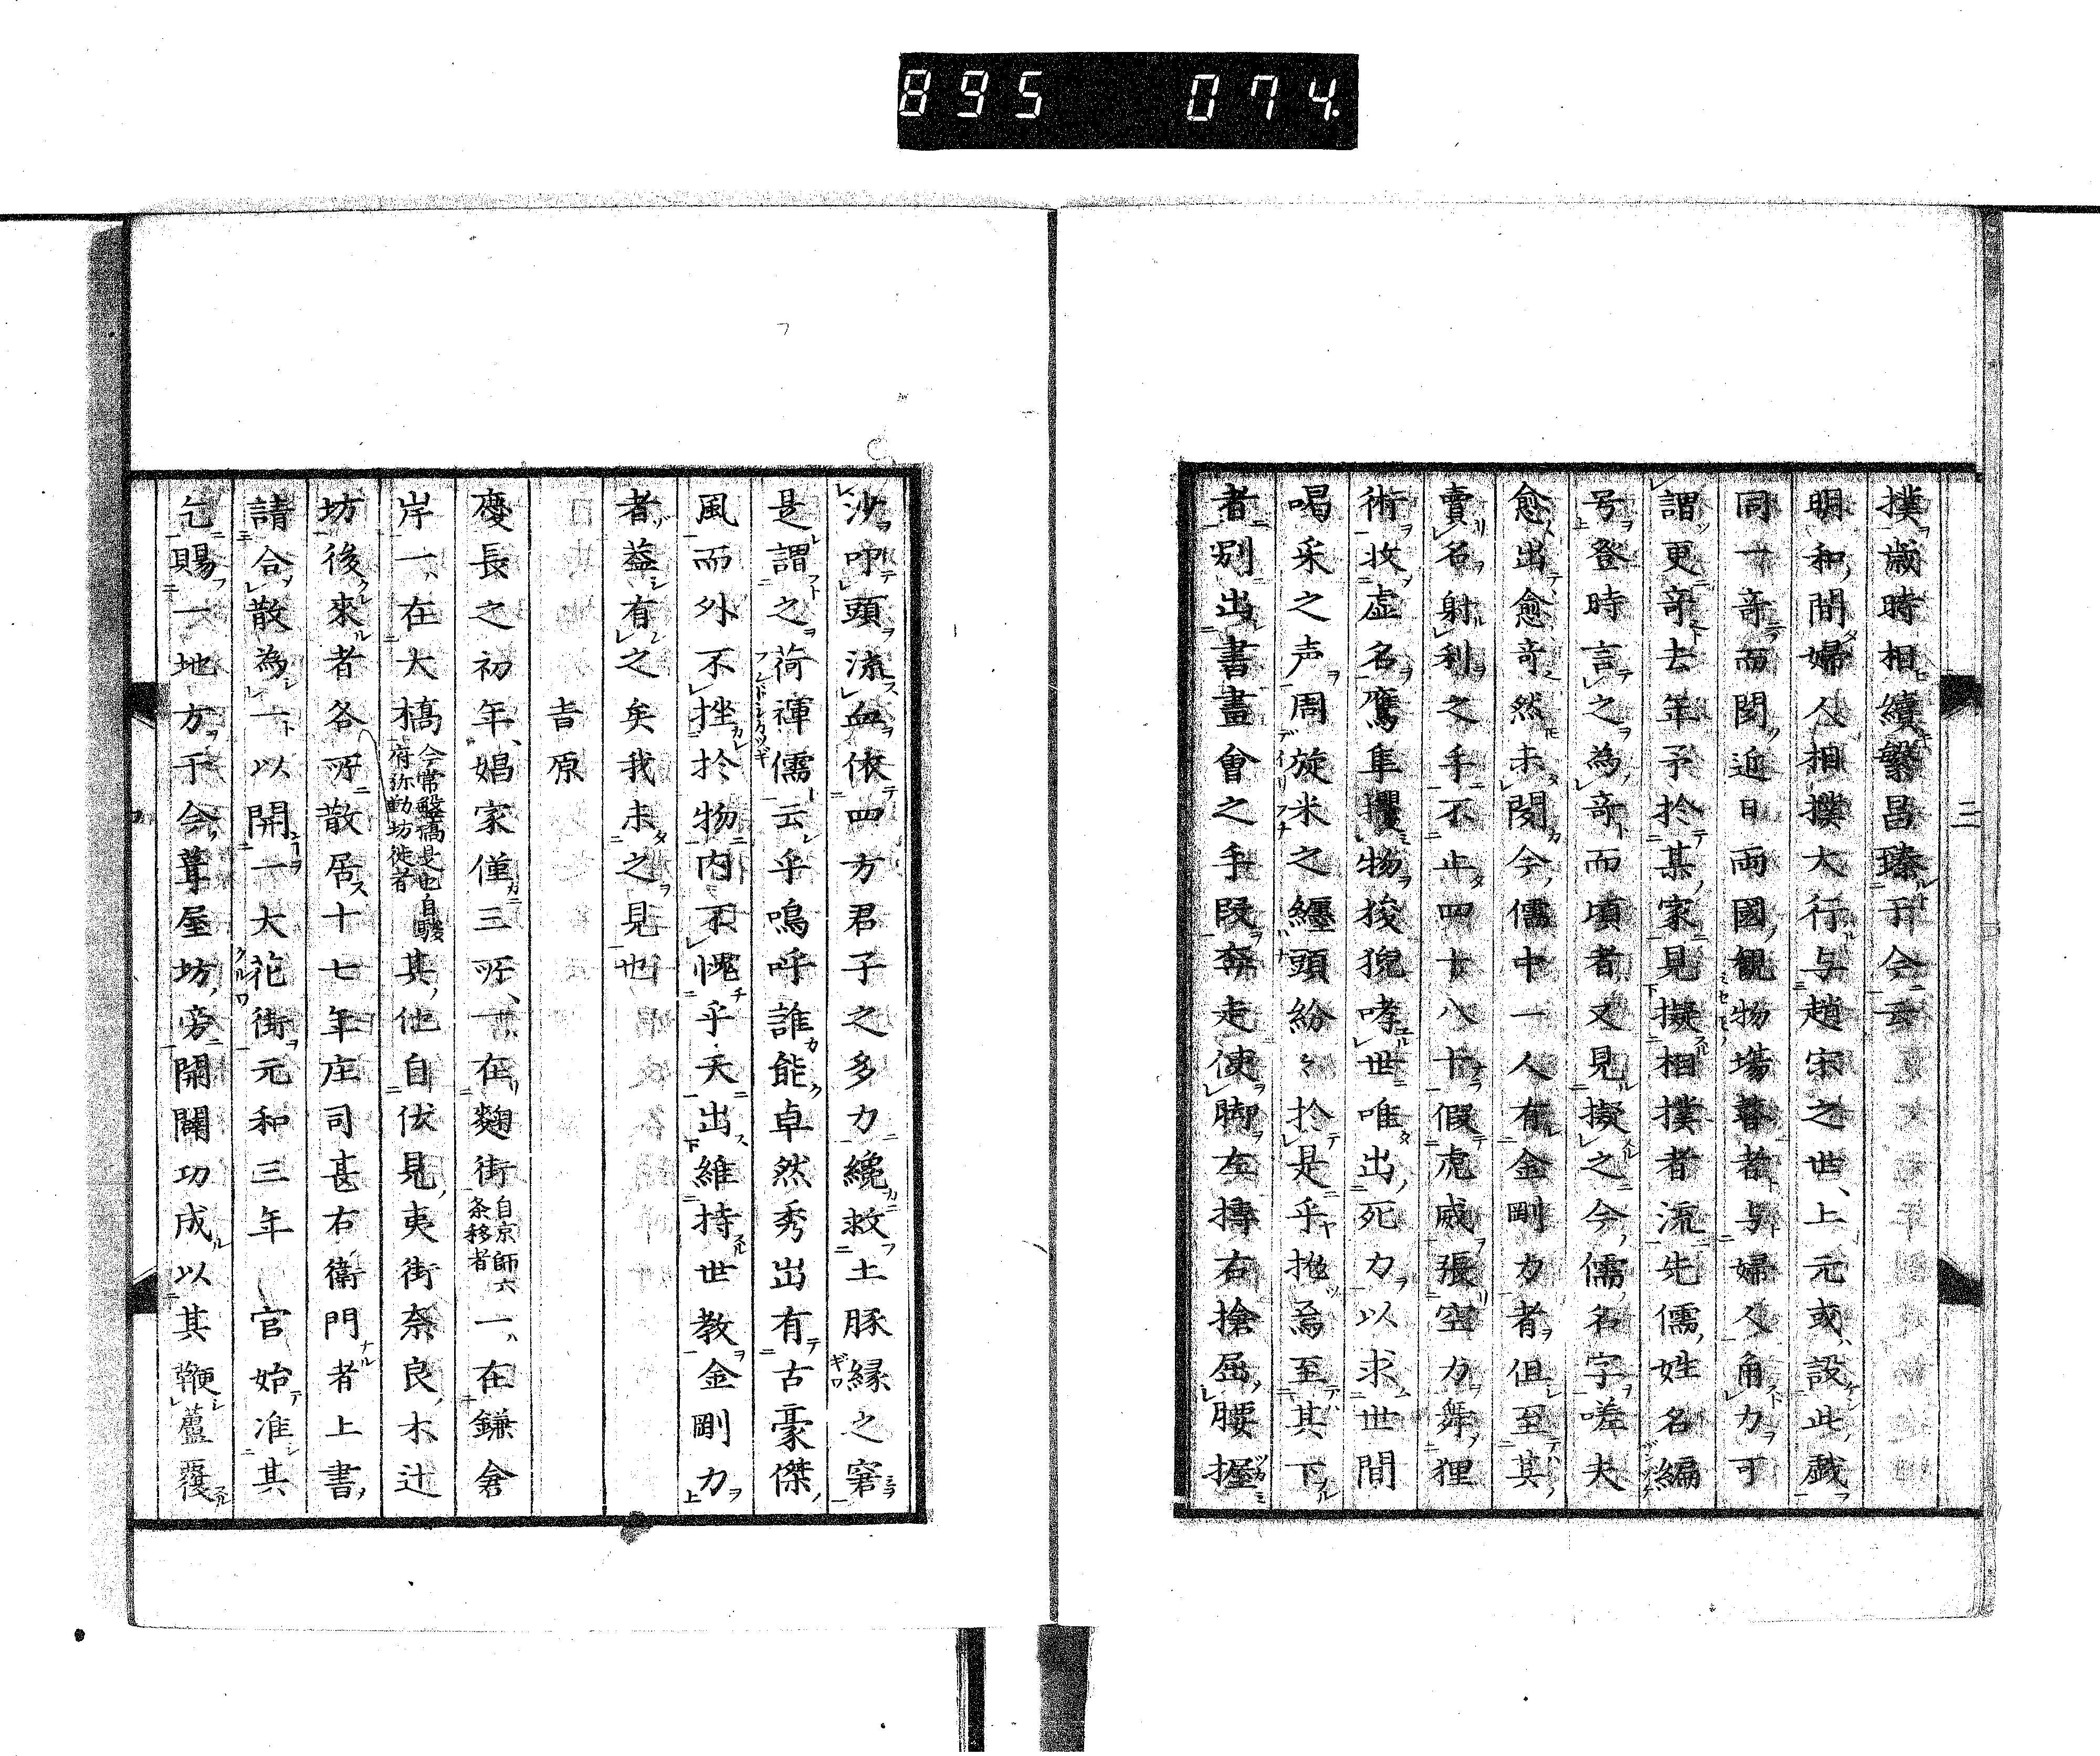 895 074
二
撲歳時相續繁昌臻于今云
明和間婦人相撲大行与趙宋之世上元或設此戯
同一奇而聞近日両國観物場瞽者与婦人角力可
謂更奇去年予於某家見擬相撲者流先儒姓名編
号登時言之為奇而頃者又見擬之今儒名字嗟夫
愈出愈奇然未聞今儒中一人有金剛力者但至其
賣名射利之手不止四十八十假虎威張空力舞狸
術收虚名鷹隼攫物狻猊哮世唯出死力以求世間
喝采之声周旋米之纏頭紛〻於是乎抛焉至其下
者別出書畫會之手段奔走使脚左摶右搶屈腰握
沙叩頭流血依四方君子之多力纔救土豚縁之窘
是謂之荷禈儒云乎嗚呼誰能卓然秀出有古豪傑
風而外不挫於物内不愧乎天出維持世教金剛力
者蓋有之矣我未之見也
吉原
慶長之初年娼家僅三所一在麹街自京師六条移者一在鎌倉
岸一在大橋今常盤橋是也自駿府弥勒坊徙者其他自伏見夷街奈良木辻
坊後來者各所散居十七年庄司甚右衛門者上書
請合散為一以開一大花街元和三年官始准其
乞賜一地方于今葺屋坊旁開闢功成以其鞭蘆覆